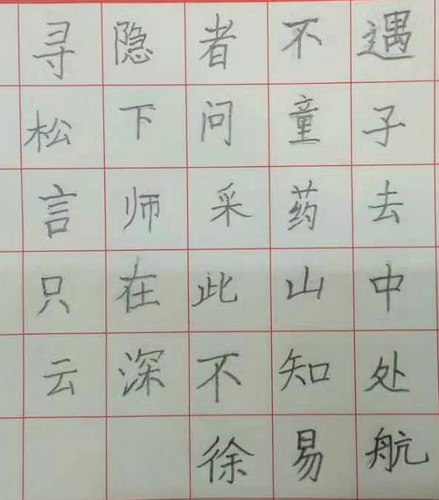 寻隐者不遇
松下问童子
言师采药去
只在此山中
云深不知处
徐易航